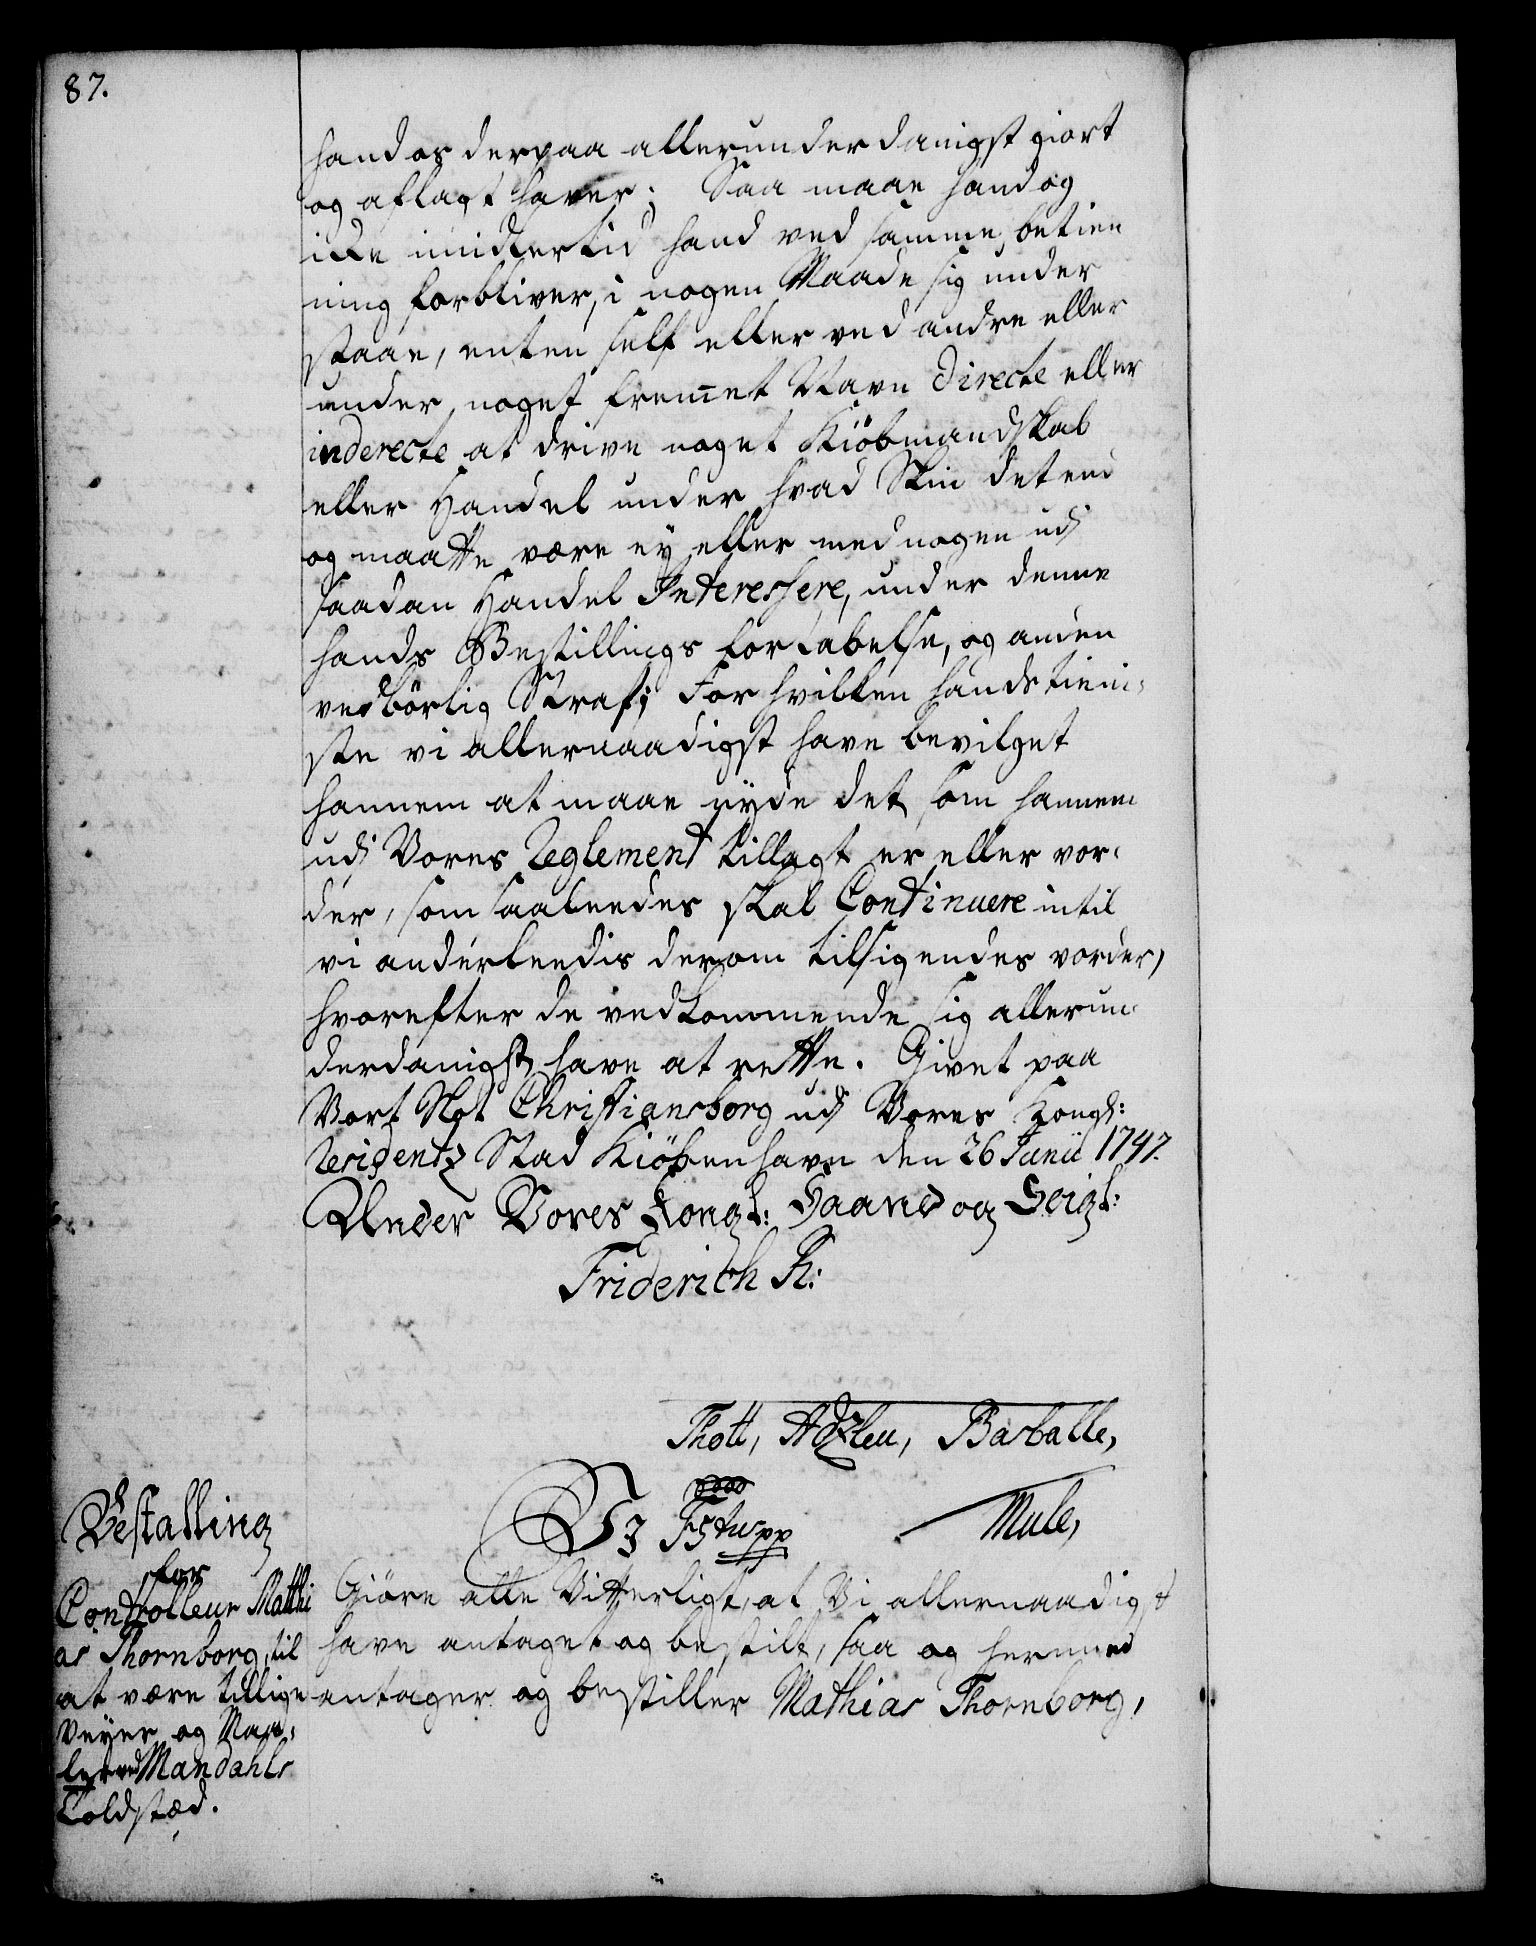 87.
hand os derpaa allerunderdanigst giort
og aflagt haver; Saa maae hand og
icke imidlertid hand ved samme betien
ning forbliver, i nogen Maade sig under
staae, enten self eller ved andre eller
under noget fremet Navn Directe eller
inderecte at drive noget Kiöbmandskab
eller Handel under hvad Skin det end
og maatte være ey eller med nogen udj
saadan Handel Interessere, under denne
hands Bestillings fortabelse, og anden
vedbörlig Straf; For hvilken hands tieni-
ste vi allernaadigst have bevilget
hannem at maae nyde det som hannem
udj Vores Reglement tillagt er eller vor-
der, som saaleedes skal Continuere intil
vi anderleedis derom tilsigendes vorder,
hvorefter de vedkommende sig allerun-
derdanigst have at rette. Givet paa
Vort Slot Christiansborg udj Vores Kongl:
Residentz Stad Kiöbenhavn den 26 Junii 1747.
Under Vores Kongl: Haand og Seigl:
Friderich R:
Thott, Adzleu, Barballe,
Mule,
Vj F5tus pp
Bestalling
for
Controlleur Mathi
as Thornborg, til
at være tillige
Veyer og Maa-
ler ved Mandahls
Toldstæd.
Giöre alle Vitterligt, at Vi allernaadigst
have antaget og bestilt, saa og hermed
antager og bestiller Mathias Thornborg,